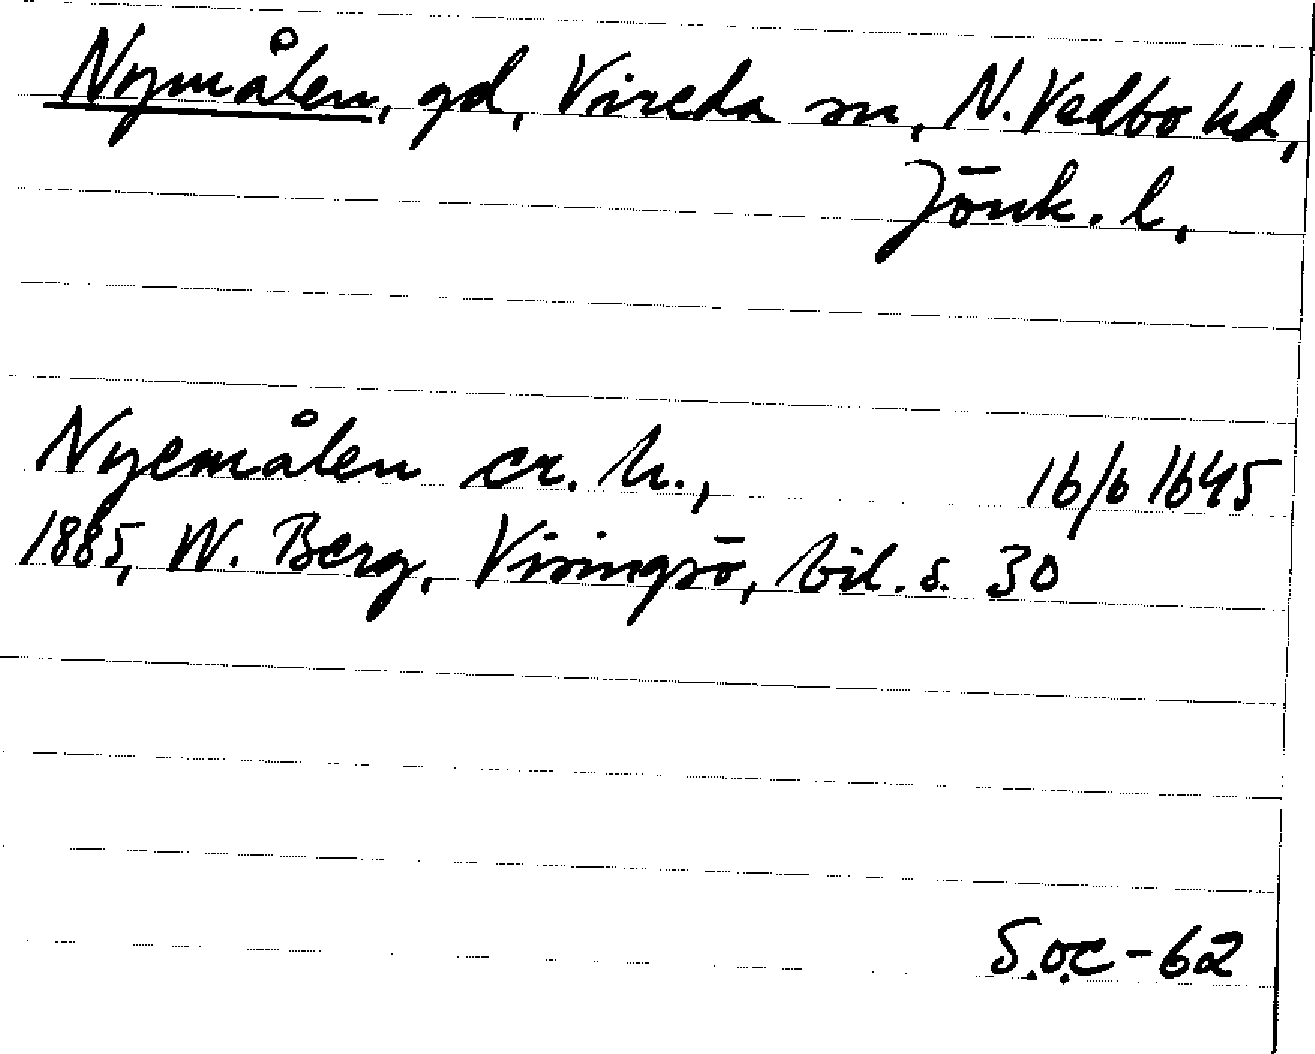 Nymålen, gd, Vireda sn, N. Vedbo hd,
Jönk. l.
Nyemålen cr. h., 16/6 1645
1885, W. Berg, Visingsö, bil. s. 30
S.O.C-62